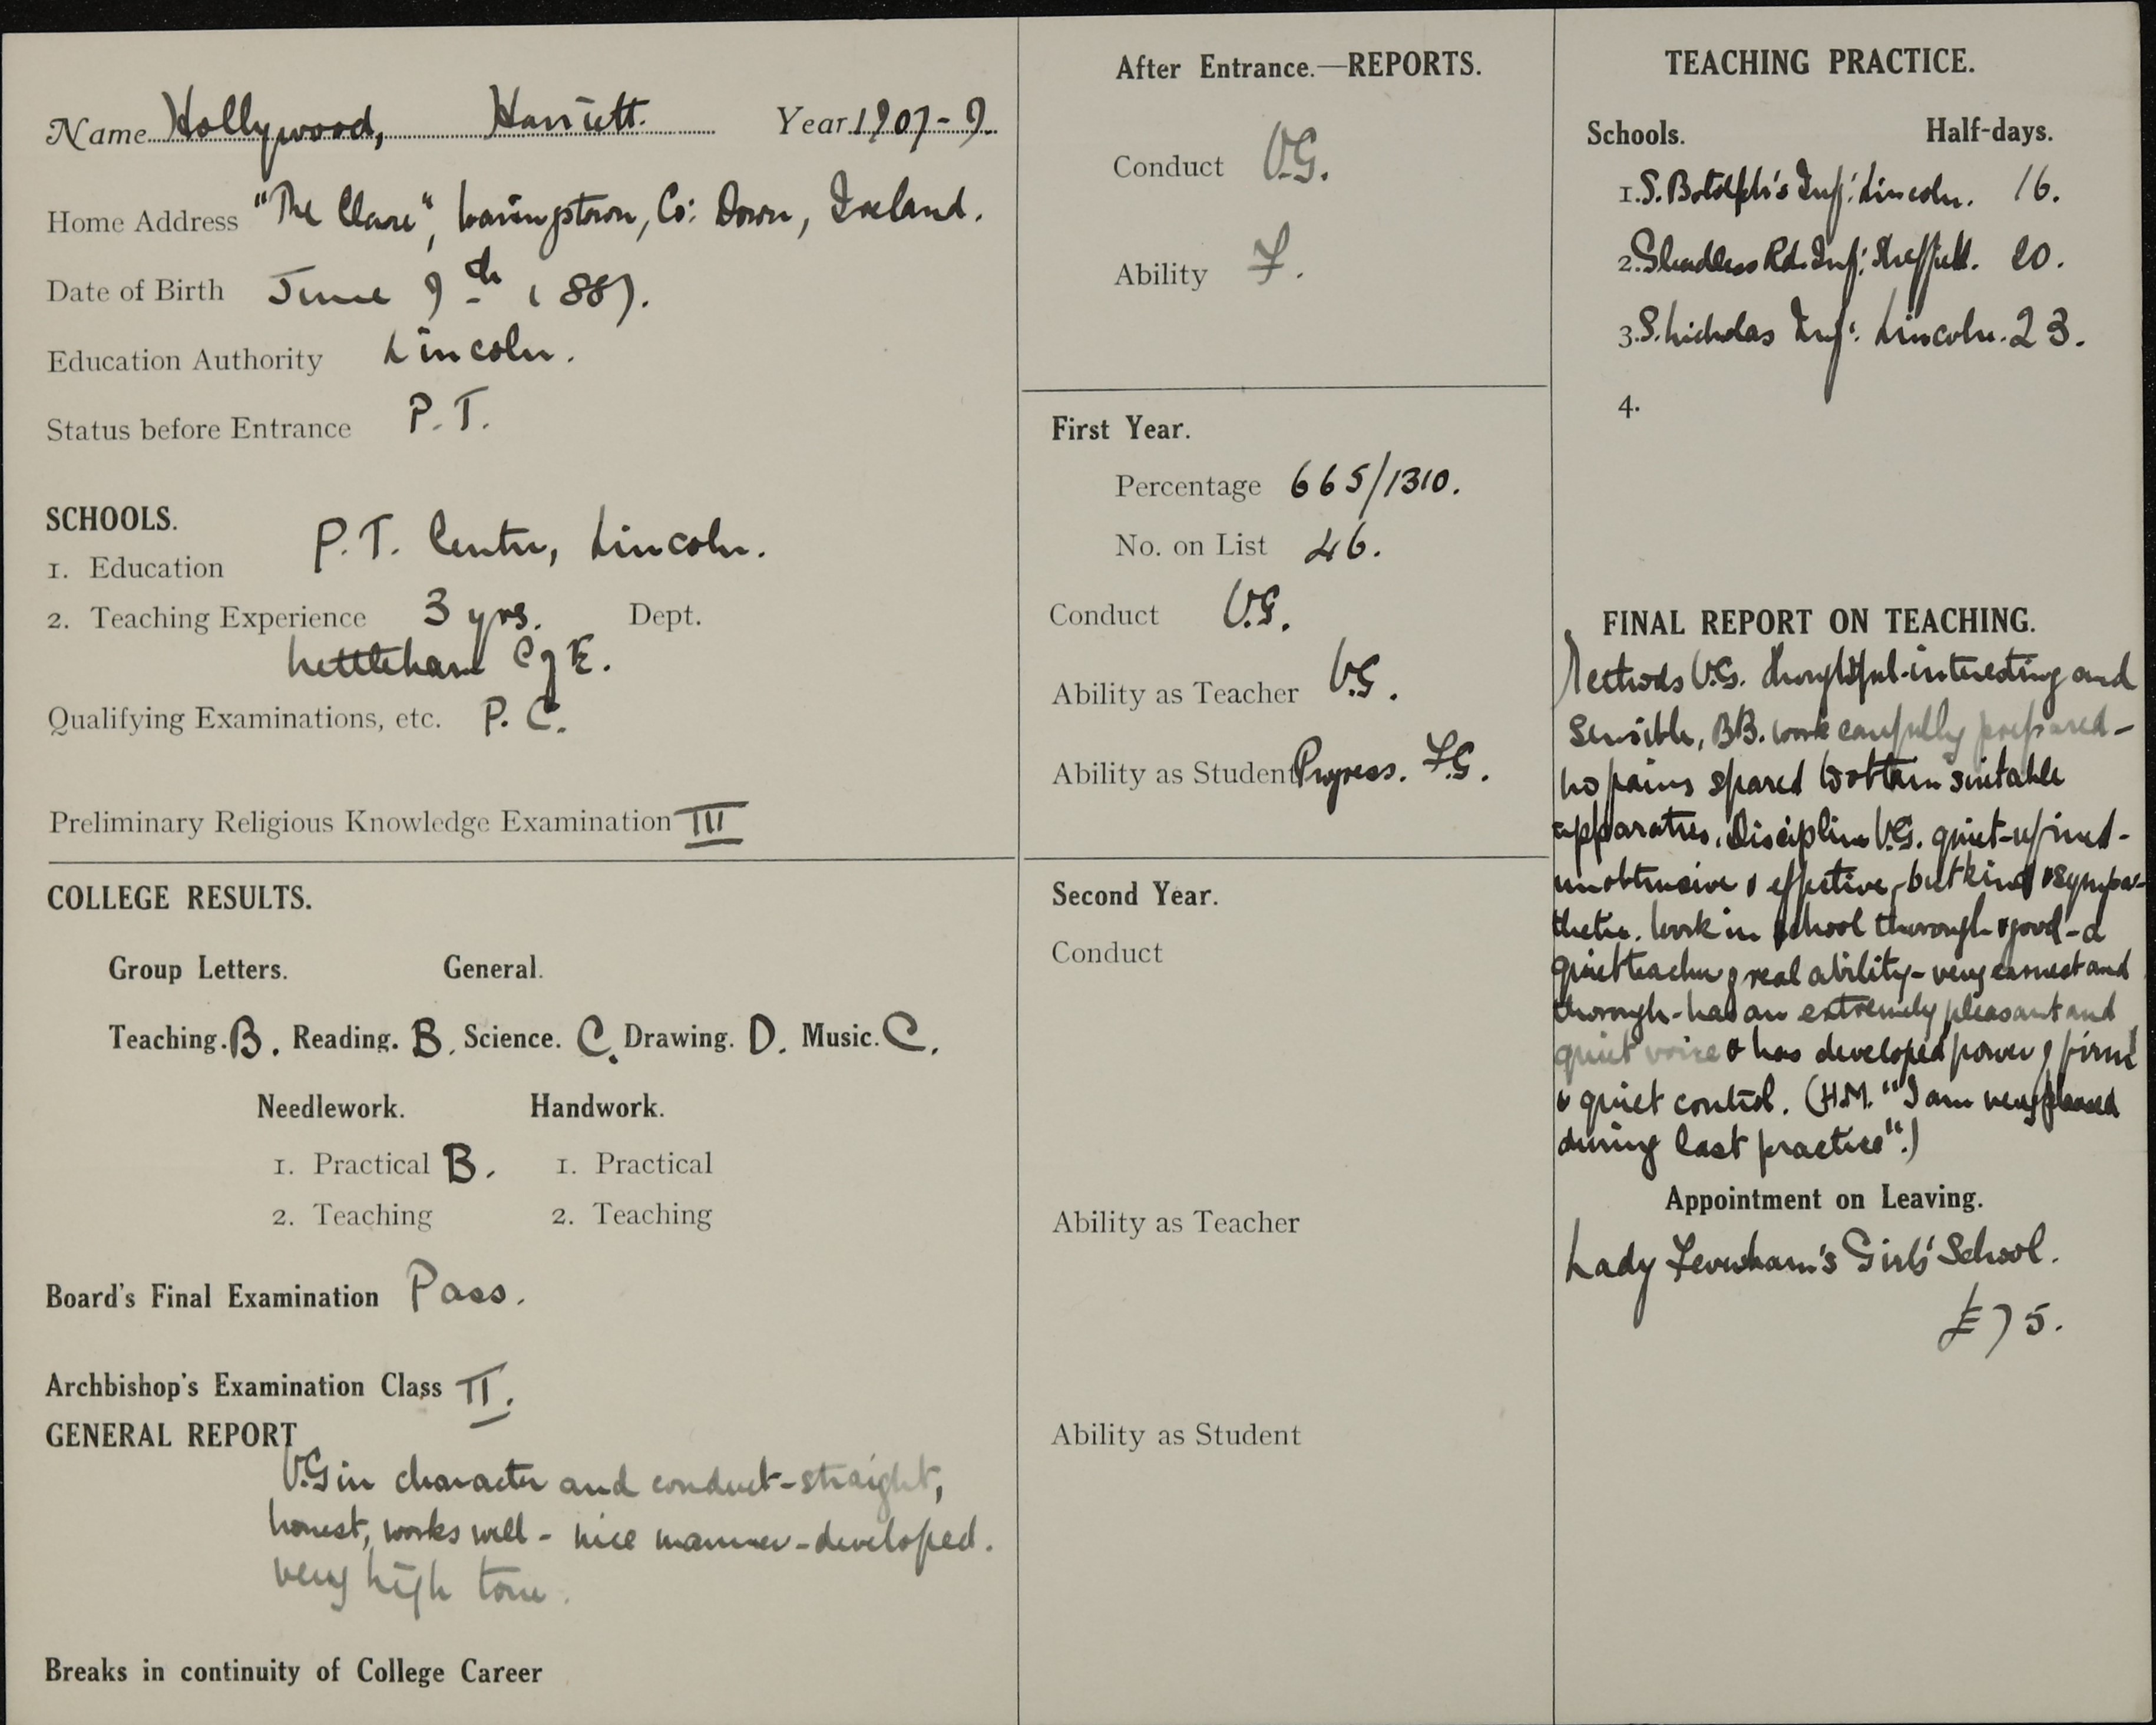 Name Hollywood, Harriett. Year 1907-9.
Home Address "The Clare", Waringstown, Co: Down, Ireland.
Date of Birth June 9th 1887.
Education Authority Lincoln.
Status before Entrance P.T.
SCHOOLS.
1. Education P.T. Centre, Lincoln.
2. Teaching Experience 3 yrs. Dept.
Nettleham C of E.
Qualifying Examinations, etc. P.C.
Preliminary Religious Knowledge Examination III
COLLEGE RESULTS.
Group Letters. General.
Teaching. B. Reading. B. Science. C. Drawing. D. Music. C.
Needlework. Handwork.
1. Practical B. 1. Practical
2. Teaching 2. Teaching
Board's Final Examination Pass.
Archbishop's Examination Class II.
GENERAL REPORT
V.G in character and conduct - straight,
honest, works well - nice manner - developed.
very high tone.
Breaks in continuity of College Career
After Entrance.—REPORTS.
Conduct V.G.
Ability F.
First Year.
Percentage 665/1310.
No. on List 46.
Conduct V.G.
Ability as Teacher V.G.
Ability as Student Progress. F.G.
Second Year.
Conduct
Ability as Teacher
Ability as Student
TEACHING PRACTICE.
Schools. Half-days.
1. S. Botolph's Inf: Lincoln. 16.
2. Gleadless Rd. Inf: Sheffield. 20.
3. S. Nicholas Inf: Lincoln. 23.
4.
FINAL REPORT ON TEACHING.
Methods V.G. thoughtful - interesting and
sensible, BB. work carefully prepared -
no pains spared to obtain suitable
apparatus. Discipline V.G. quiet - refined -
unobtrusive & effective, - but kind & sympa-
thetic. Work in school thorough & good - a
quiet teacher of real ability - very earnest and
thorough - has an extremely pleasant and
quiet voice & has developed power of firm
& quiet control. (H.M. "I am very pleased
during last practice".)
Appointment on Leaving.
Lady Feversham's Girls' School.
£75.